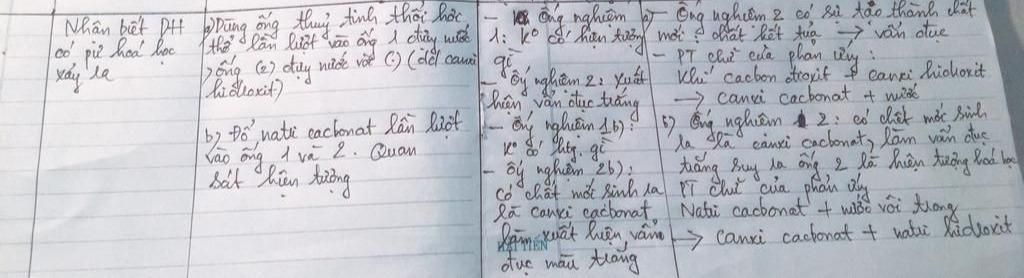 Nhân biết DH
có pứ hoá học
xảy ra
a) Dùng ống thuỷ tinh thổi hơi
thở lần lượt vào ống 1 đựng nước
, ống (2) đựng nước vôi (:) (dd canxi
hiđroxit)
b) Đổ natri cacbonat lần lượt
vào ống 1 và 2. Quan
sát hiện tượng
- Ống nghiệm
1: Kº có hiện tượng
gì
- Ống nghiệm 2: xuất
hiện vẩn đục trắng
- Ống nghiệm 1b):
Kº có htg gì
- Ống nghiệm 2b):
có chất mới sinh ra
là canxi cacbonat
làm xuất hiện vẩn
đục màu trắng
a) - Ống nghiệm 2 có sự tạo thành chất
mới: chất kết tủa → vẩn đục
- PT chữ của phản ứng:
Khí cacbon đioxit + canxi hiđroxit
→ canxi cacbonat + nước
b) Ống nghiệm 2: có chất mới sinh
ra là canxi cacbonat, làm vẩn đục
trắng suy ra ống 2 là hiện tượng hoá học
PT chữ của phản ứng
Natri cacbonat + nước vôi trong
→ canxi cacbonat + natri hiđroxit
HẢI TIẾN